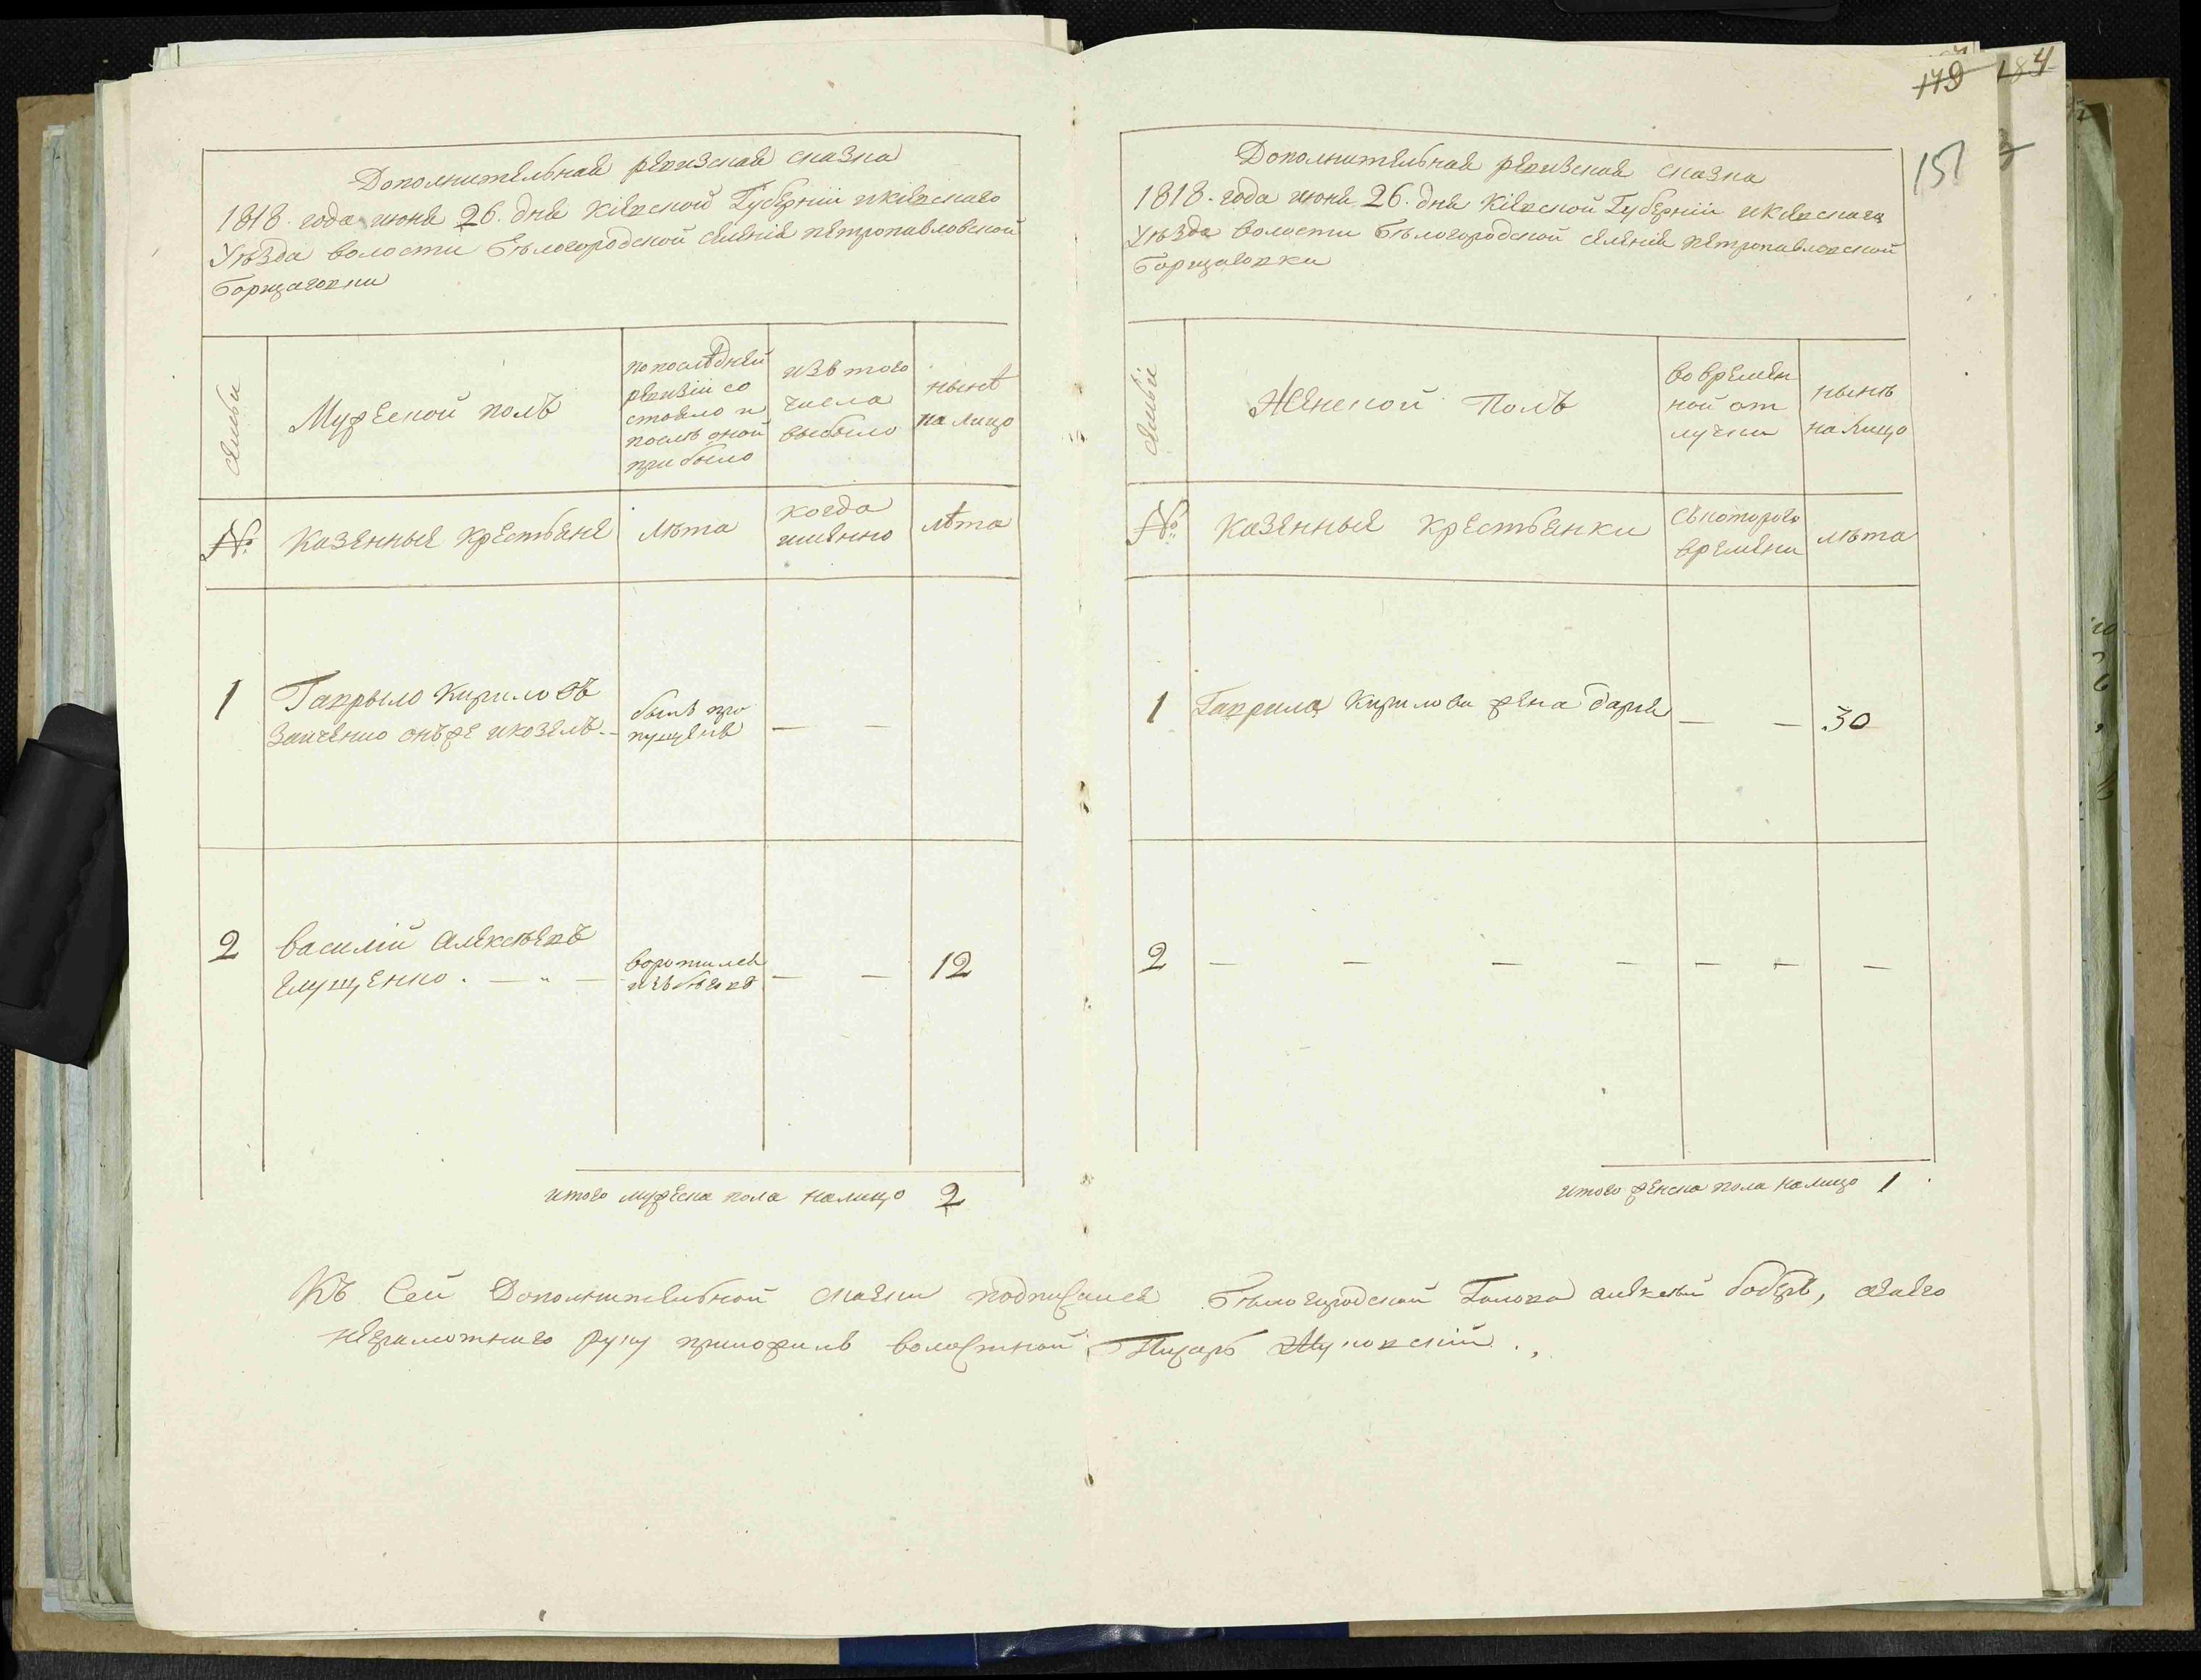 Дополнительная ревизская сказка
1818. года июня 26. дня Кіевской Губерніи и кіевскаго
Уѣзда волости Бѣлогородской селенія петропавловской
Борщаговки
семьи
Мужеской полъ
по послѣдней
ревизіи со
стояло и
послѣ оной
прибыло
изъ того
числа
выбыло
нынѣ
на лицо
№
Казенные крестьяне
лѣта
когда
именно
лѣта
1
Гаврыло Кириловъ
Заиченко онъже и козелъ
былъ про
пущенъ
— —
2
василій Алексѣевъ
Глущенко . — „ —
воротился
изъ бѣговъ
— —
12
итого мужеска пола налицо 2
179 184
151
Дополнительная ревизская сказка
1818. года июня 26. дня Кіевской Губерніи и кіевскаго
Уѣзда волости Бѣлогородской селенія петропавловской
Борщаговки
семьи
Женской Полъ
во времен
ной от
лучки
нынѣ
на лицо
№
Казенные крестьянки
съ котораго
времени
лѣта
1
Гаврила Кирилова жена Дарья
— —
30
2
— — — — — — —
итого женска пола налицо 1
Къ Сей Дополнительной сказки подписался Бѣлогородской Голова алексей бобръ, а за его
неграмотнаго руку приложилъ волостной Писарь